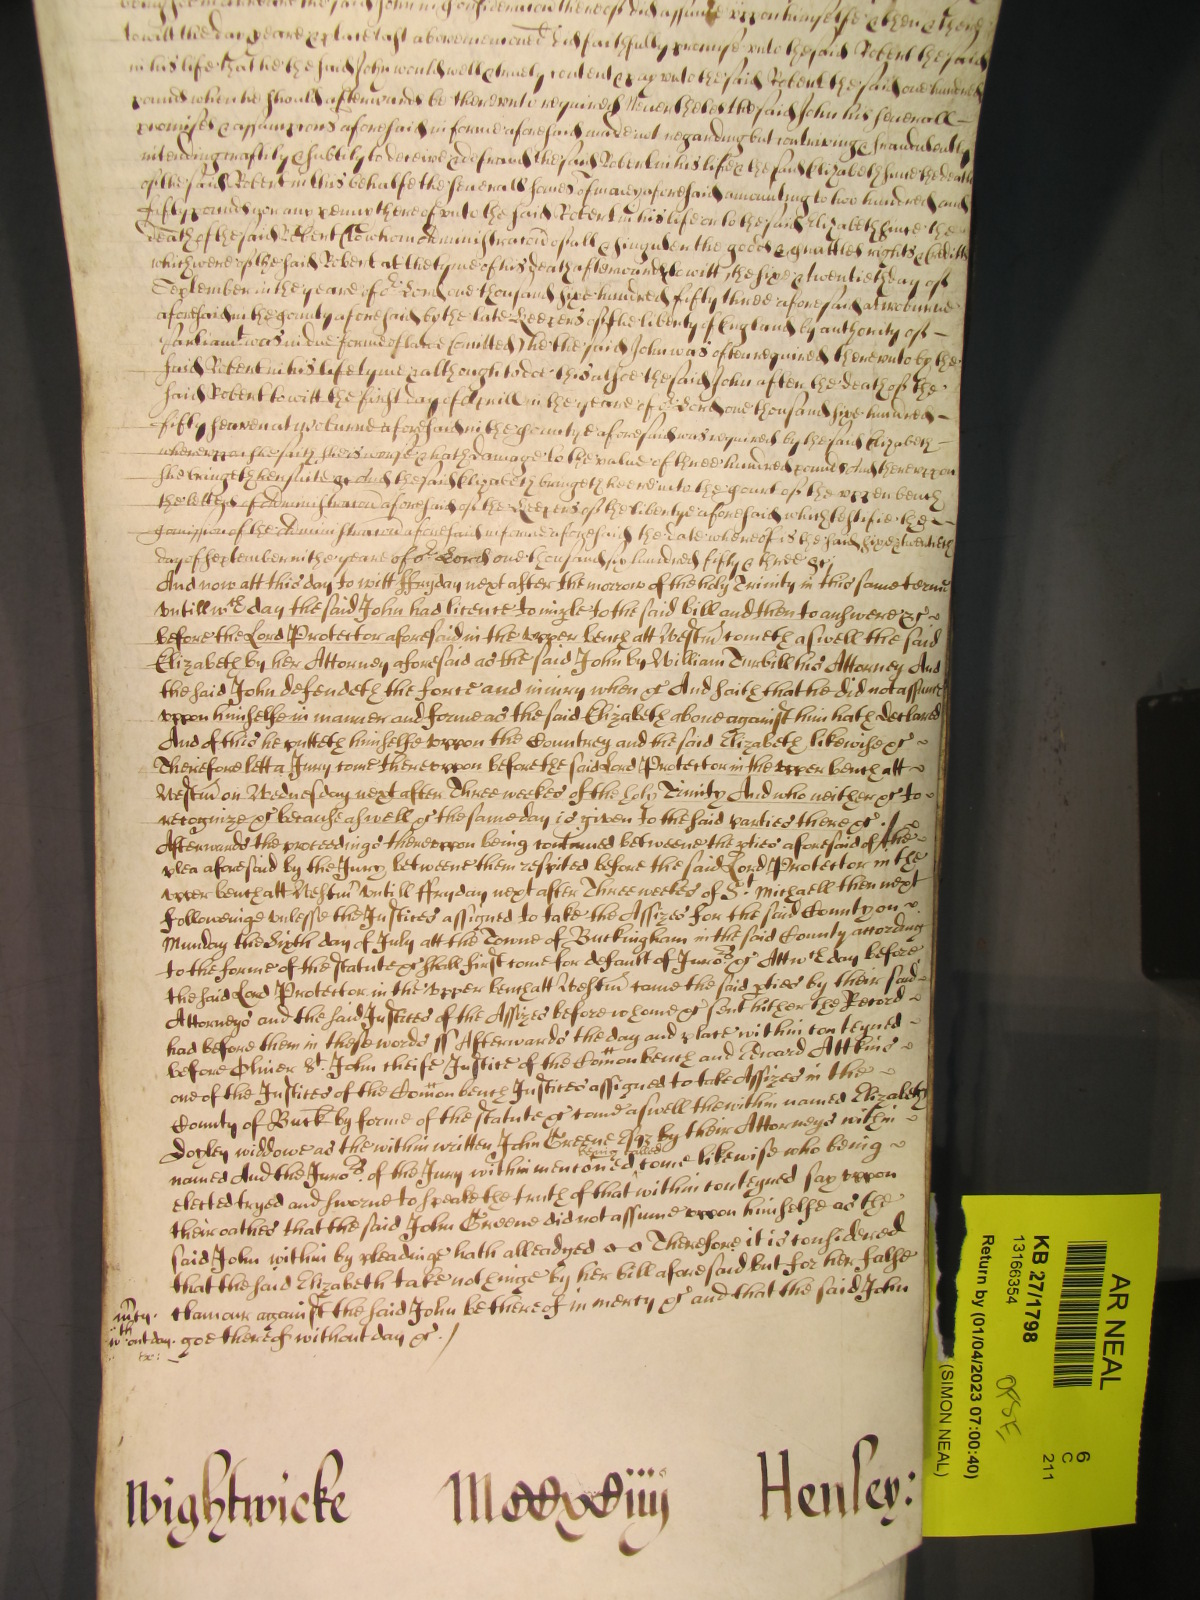 to witt the day yeare & place last abovemenconed did faithfully promise unto the said Robert the said
in his life that he the said John would well & truely content & pay unto the said Robert the said one hundred
pounds when he should afterwards be thereunto required Neverthelesse the said John his severall
promises & assumpcions aforesaid in forme aforesaid made not regarding but contriving & fraudulently
intending craftily & subtily to deceive & defraud the said Robert in his life & the said Elizabeth since the death
of the said Robert in this behalfe the severall somes of money aforesaid amounting to two hundred and
fifty pounds nor any penny thereof unto the said Robert in his life or to the said Elizabeth since the
death of the said Robert (to whom administracon of all & singuler the goods & chattles rights & creditts
which were of the said Robert at the tyme of his death afterwards to witt the six & twentieth day of
September in the yeare of or Lord one thousand six hundred fifty three aforesaid at Woburne
aforesaid in the County aforesaid by the late Keepers of the liberty of England by authority of
Parliamt was in due forme of lawe comitted) he the said John was often required thereunto by the
said Robert in his life tyme & although to doe this alsoe the said John after the death of the
said Robert to witt the first day of Aprill in the yeare of or Lord one thousand six hundred
fifty seaven at Woburne aforesaid in the County aforesaid was required by the said Elizabeth
whereupon she saith she is worse & hath damage to the value of three hundred pounds And thereupon
she bringeth her suite &c And the said Elizabeth bringeth here into the Court of the upper bench
the letters of Administracon aforesaid of the Keepers of the liberty aforesaid which testifie the
Comission of the Administracon aforesaid in forme aforesaid the date whereof is the said six & twentieth
day of September in the yeare of or Lord one thousand six hundred fifty & three &c
And now att this day to witt ffryday next after the morrow of the holy Trinity in this same terme
untill wch day the said John had licence to imple to the said bill and then to answere &c
before the Lord Protector aforesaid in the upper bench att Westm cometh aswell the said
Elizabeth by her Attorney aforesaid as the said John by William Turbill his Attorney And
the said John defendeth the force and iniury when &c And saith that he did not assume
uppon himselfe in manner and forme as the said Elizabeth above against him hath declared
And of this he putteth himselfe uppon the Countrey and the said Elizabeth likewise &c
Therefore lett a Jury come thereuppon before the said Lord Protector in the upper bench att
Westm on Wednesday next after Three weekes of the holy Trinity And who neither &c to
recognize &c because aswell &c the same day is given to the said parties there &c
Afterwards the proceedings thereuppon being continued betweene the pties aforesaid of the
plea aforesaid by the Jury betweene them respited before the said Lord Protector in the
upper bench att Westm untill ffryday next after Three weekes of St Michaell then next
followeinge unlesse the Justices assigned to take the Assizes for the said County on
Munday the Sixth day of July att the Towne of Buckingham in the said County according
to the forme of the statute &c shall first come for default of Juro's &c Att wch day before
the said Lord Protector in the upper bench att Westm came the said pties by their said
Attorneys and the said Justices of the Assizes before whome &c sent hither the Record
had before them in these words ss Afterwards the day and place within conteyned
before Oliver St John cheife Justice of the Comon bench and Edward Attkins
one of the Justices of the Comon bench Justices assigned to take Assizes in the
County of Buck by forme of the statute &c come aswell the within named Elizabeth
Doyley widdowe as the within written John Greene Esqr by their Attorneys within
named And the Juro's of the Jury within menconed being called come likewise who being
elected tryed and sworne to speake the truth of that within conteyned say uppon
their oathes that the said John Greene did not assume uppon himselfe as the
said John within by pleadinge hath alleadged Therefore it is considered
that the said Elizabeth take nothinge by her bill aforesaid but for her false
mcy. clamour against the said John be thereof in mercy &c and that the said John
wthout day. goe thereof without day &c.
Wightwicke MDCCxCiiij Henley:
AR NEAL
KB 27/1798
13166354
Return by (01/04/2023 07:00:40)
(SIMON NEAL)
6
C
211